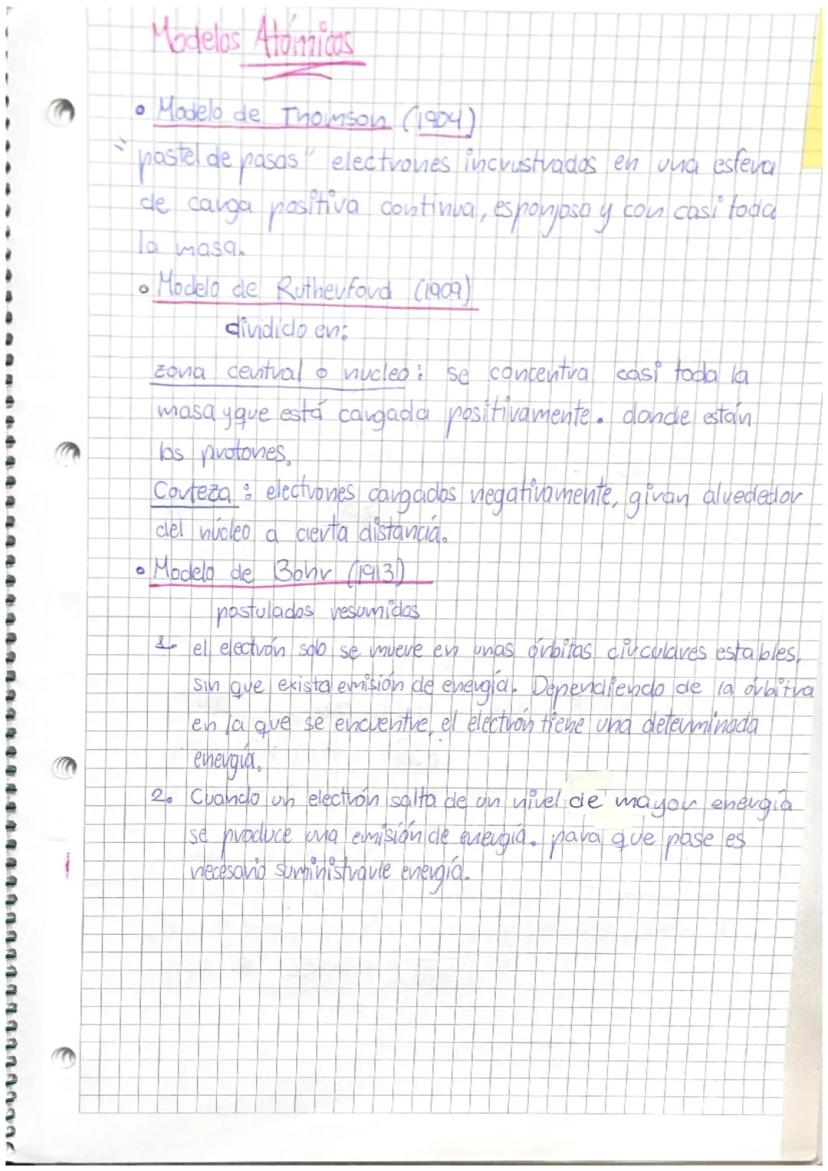 Modelos Atómicos
• Modelo de Thomson (1904)
"pastel de pasas" electrones incrustrados en una esfera
de carga positiva continua, esponjosa y con casi toda
la masa.
• Modelo de Rutherford (1909)
dividido en:
zona central o nucleo: se concentra casi toda la
masa y que está cargada positivamente. donde están
los protones,
Corteza: electrones cargados negativamente, giran alrededor
del núcleo a cierta distancia.
• Modelo de Bohr (1913)
postulados resumidos
1. el electrón solo se mueve en unas órbitas circulares estables,
sin que exista emisión de energía. Dependiendo de la órbitra
en la que se encuentre, el electrón tiene una determinada
energía.
2. Cuando un electrón salta de un nivel de mayor energía
se produce una emisión de energía. para que pase es
necesario suministrarle energía.